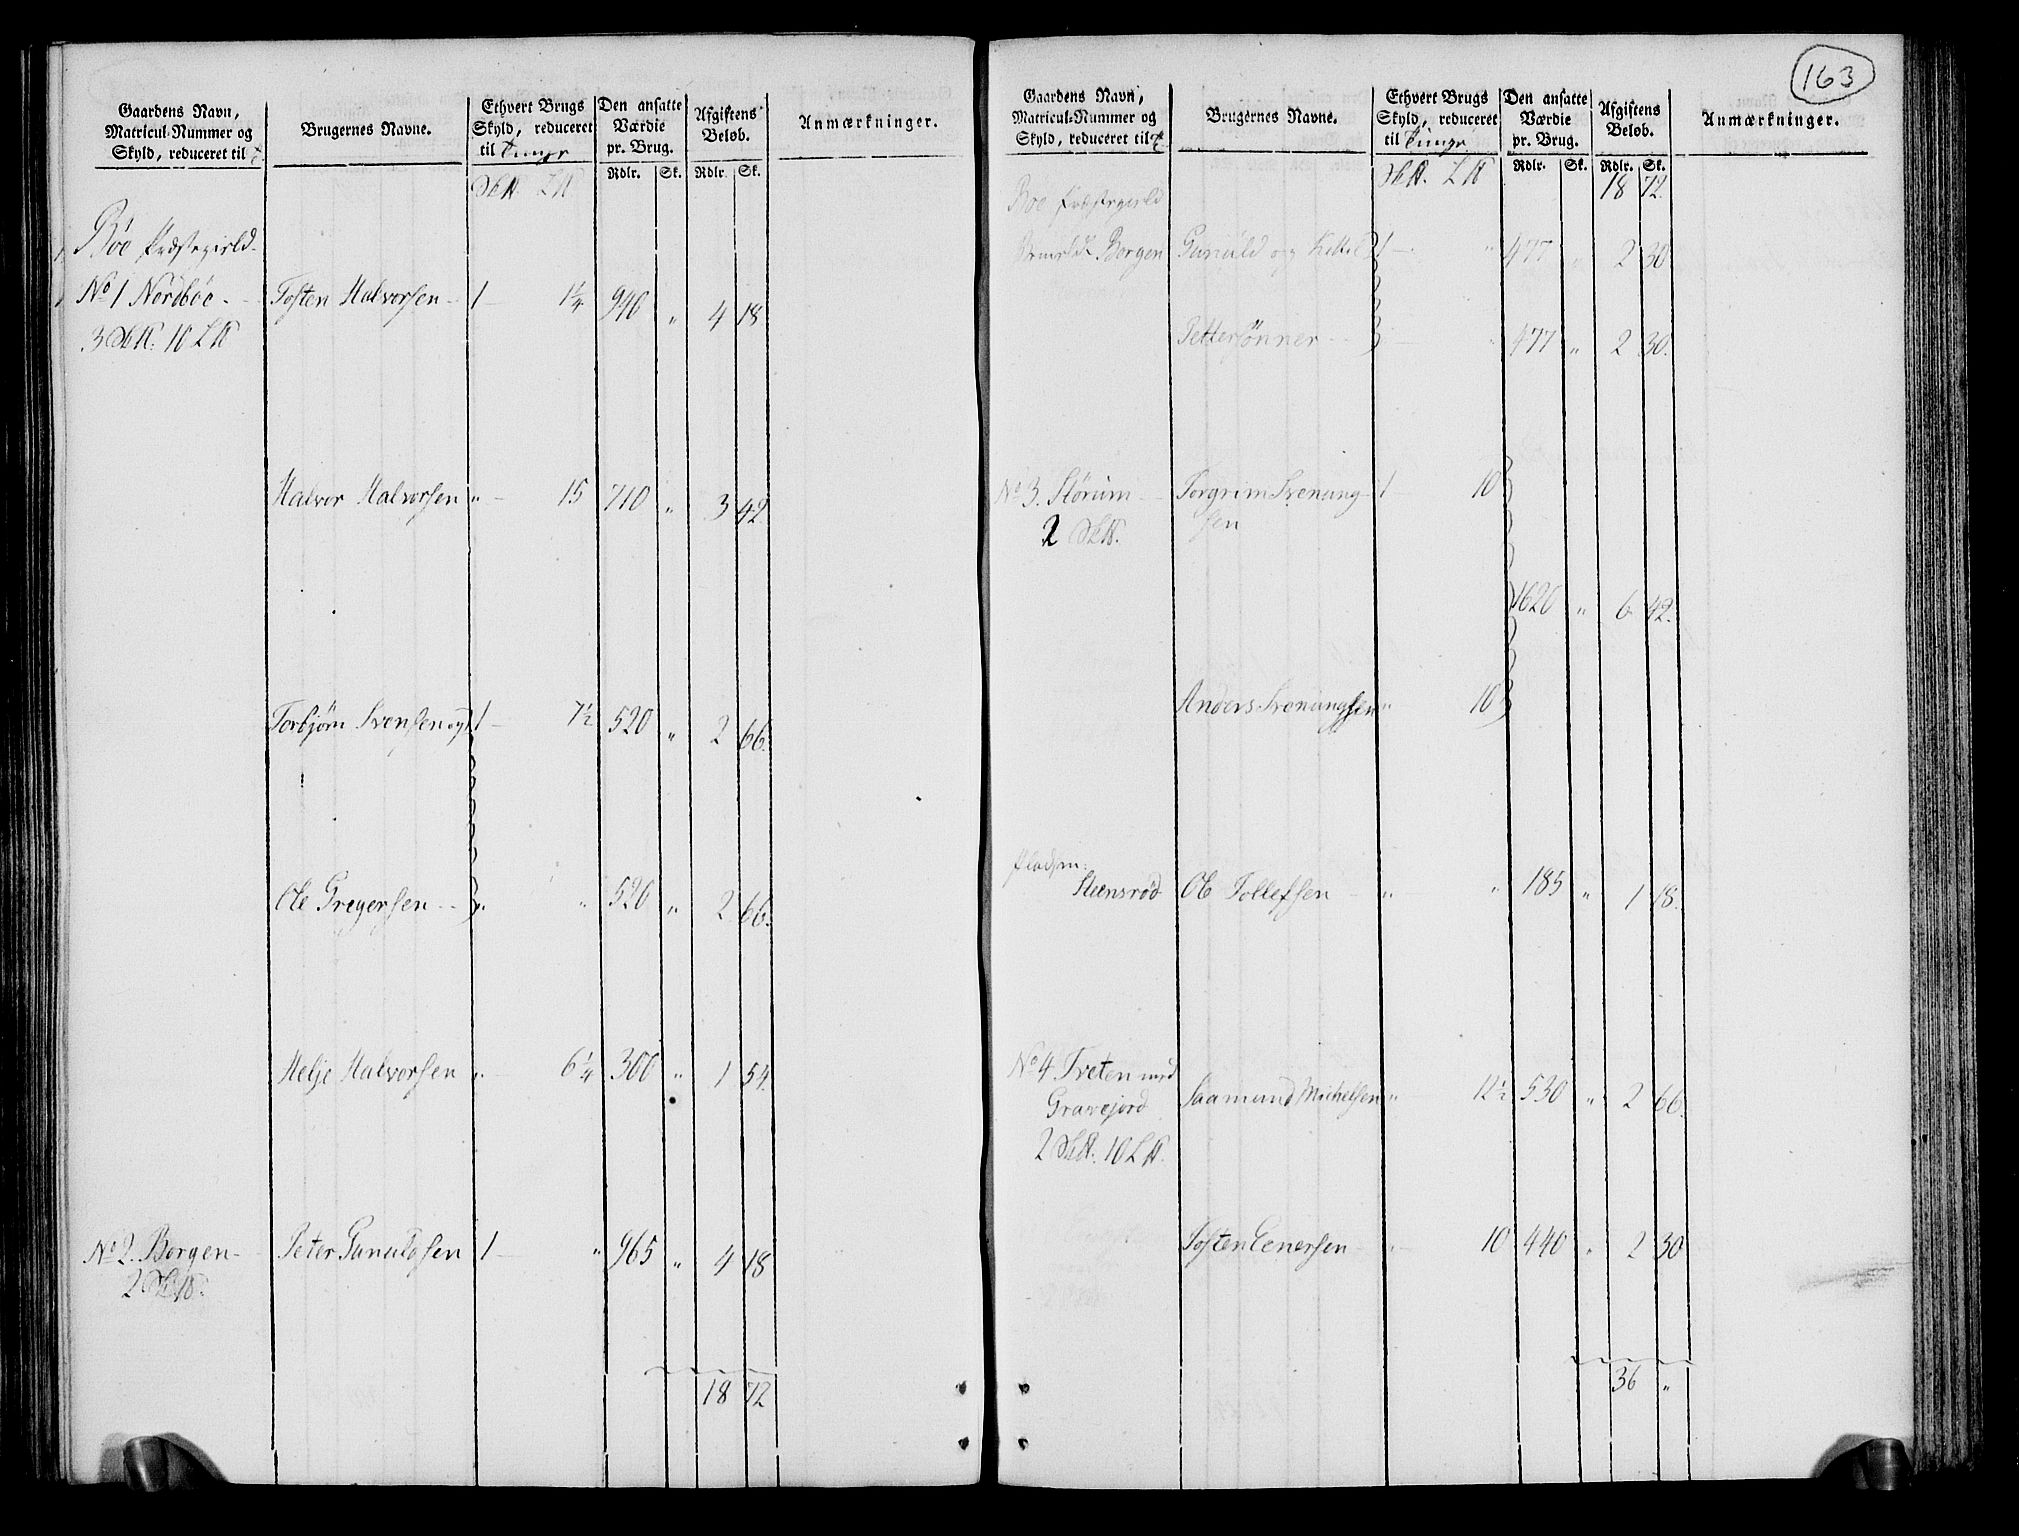 163
Gaardens Navn, Matricul-Nummer og Skyld, reduceret til
Brugernes Navne.
Ethvert Brugs Skyld, reduceret til Tunge
Den ansatte Værdie pr. Brug.
Afgiftens Beløb.
Anmærkninger.
Rdlr. Sk. Rdlr. Sk.
Bøe Præstegield.
No 1 Nordbøe - Tosten Halvorsen - 1 - 1¼ 940 „ 4 18
3 10
Halvor Halvorsen „ - 15 710 „ 3 42
Torbjørn Svensen og 1 - 7½ 520 „ 2 66.
Ole Gregersen - - „ „ 520 „ 2 66.
Helje Halvorsen „ - 6¼ 300 „ 1 54.
No 2. Borgen - Peter Gunuldsen 1 - „ 965 „ 4 18
2
18 72
Gaardens Navn, Matricul-Nummer og Skyld, reduceret til
Brugernes Navne.
Ethvert Brugs Skyld, reduceret til Tunge
Den ansatte Værdie pr. Brug.
Afgiftens Beløb.
Anmærkninger.
Rdlr. Sk. Rdlr. Sk.
18 72.
Bøe Præstegield
Borgen Gunuld og Kettel 1 - „ 477 „ 2 30.
Pettersønner - - „ 477 „ 2 30.
No 3. Størum - Torgrim Svenung- 1 - 10
2 sen
1620 „ 6 42.
Anders Svenungsen „ 10
Pladsen:
Steensrød Ole Tollefsen - „ „ 185 „ 1 18.
No 4 Tveten med
Gravejord Saamund Michelsen „ 12½ 530 „ 2 66.
2 10
Tosten Eenersen - „ 10 440 „ 2 30
36 „